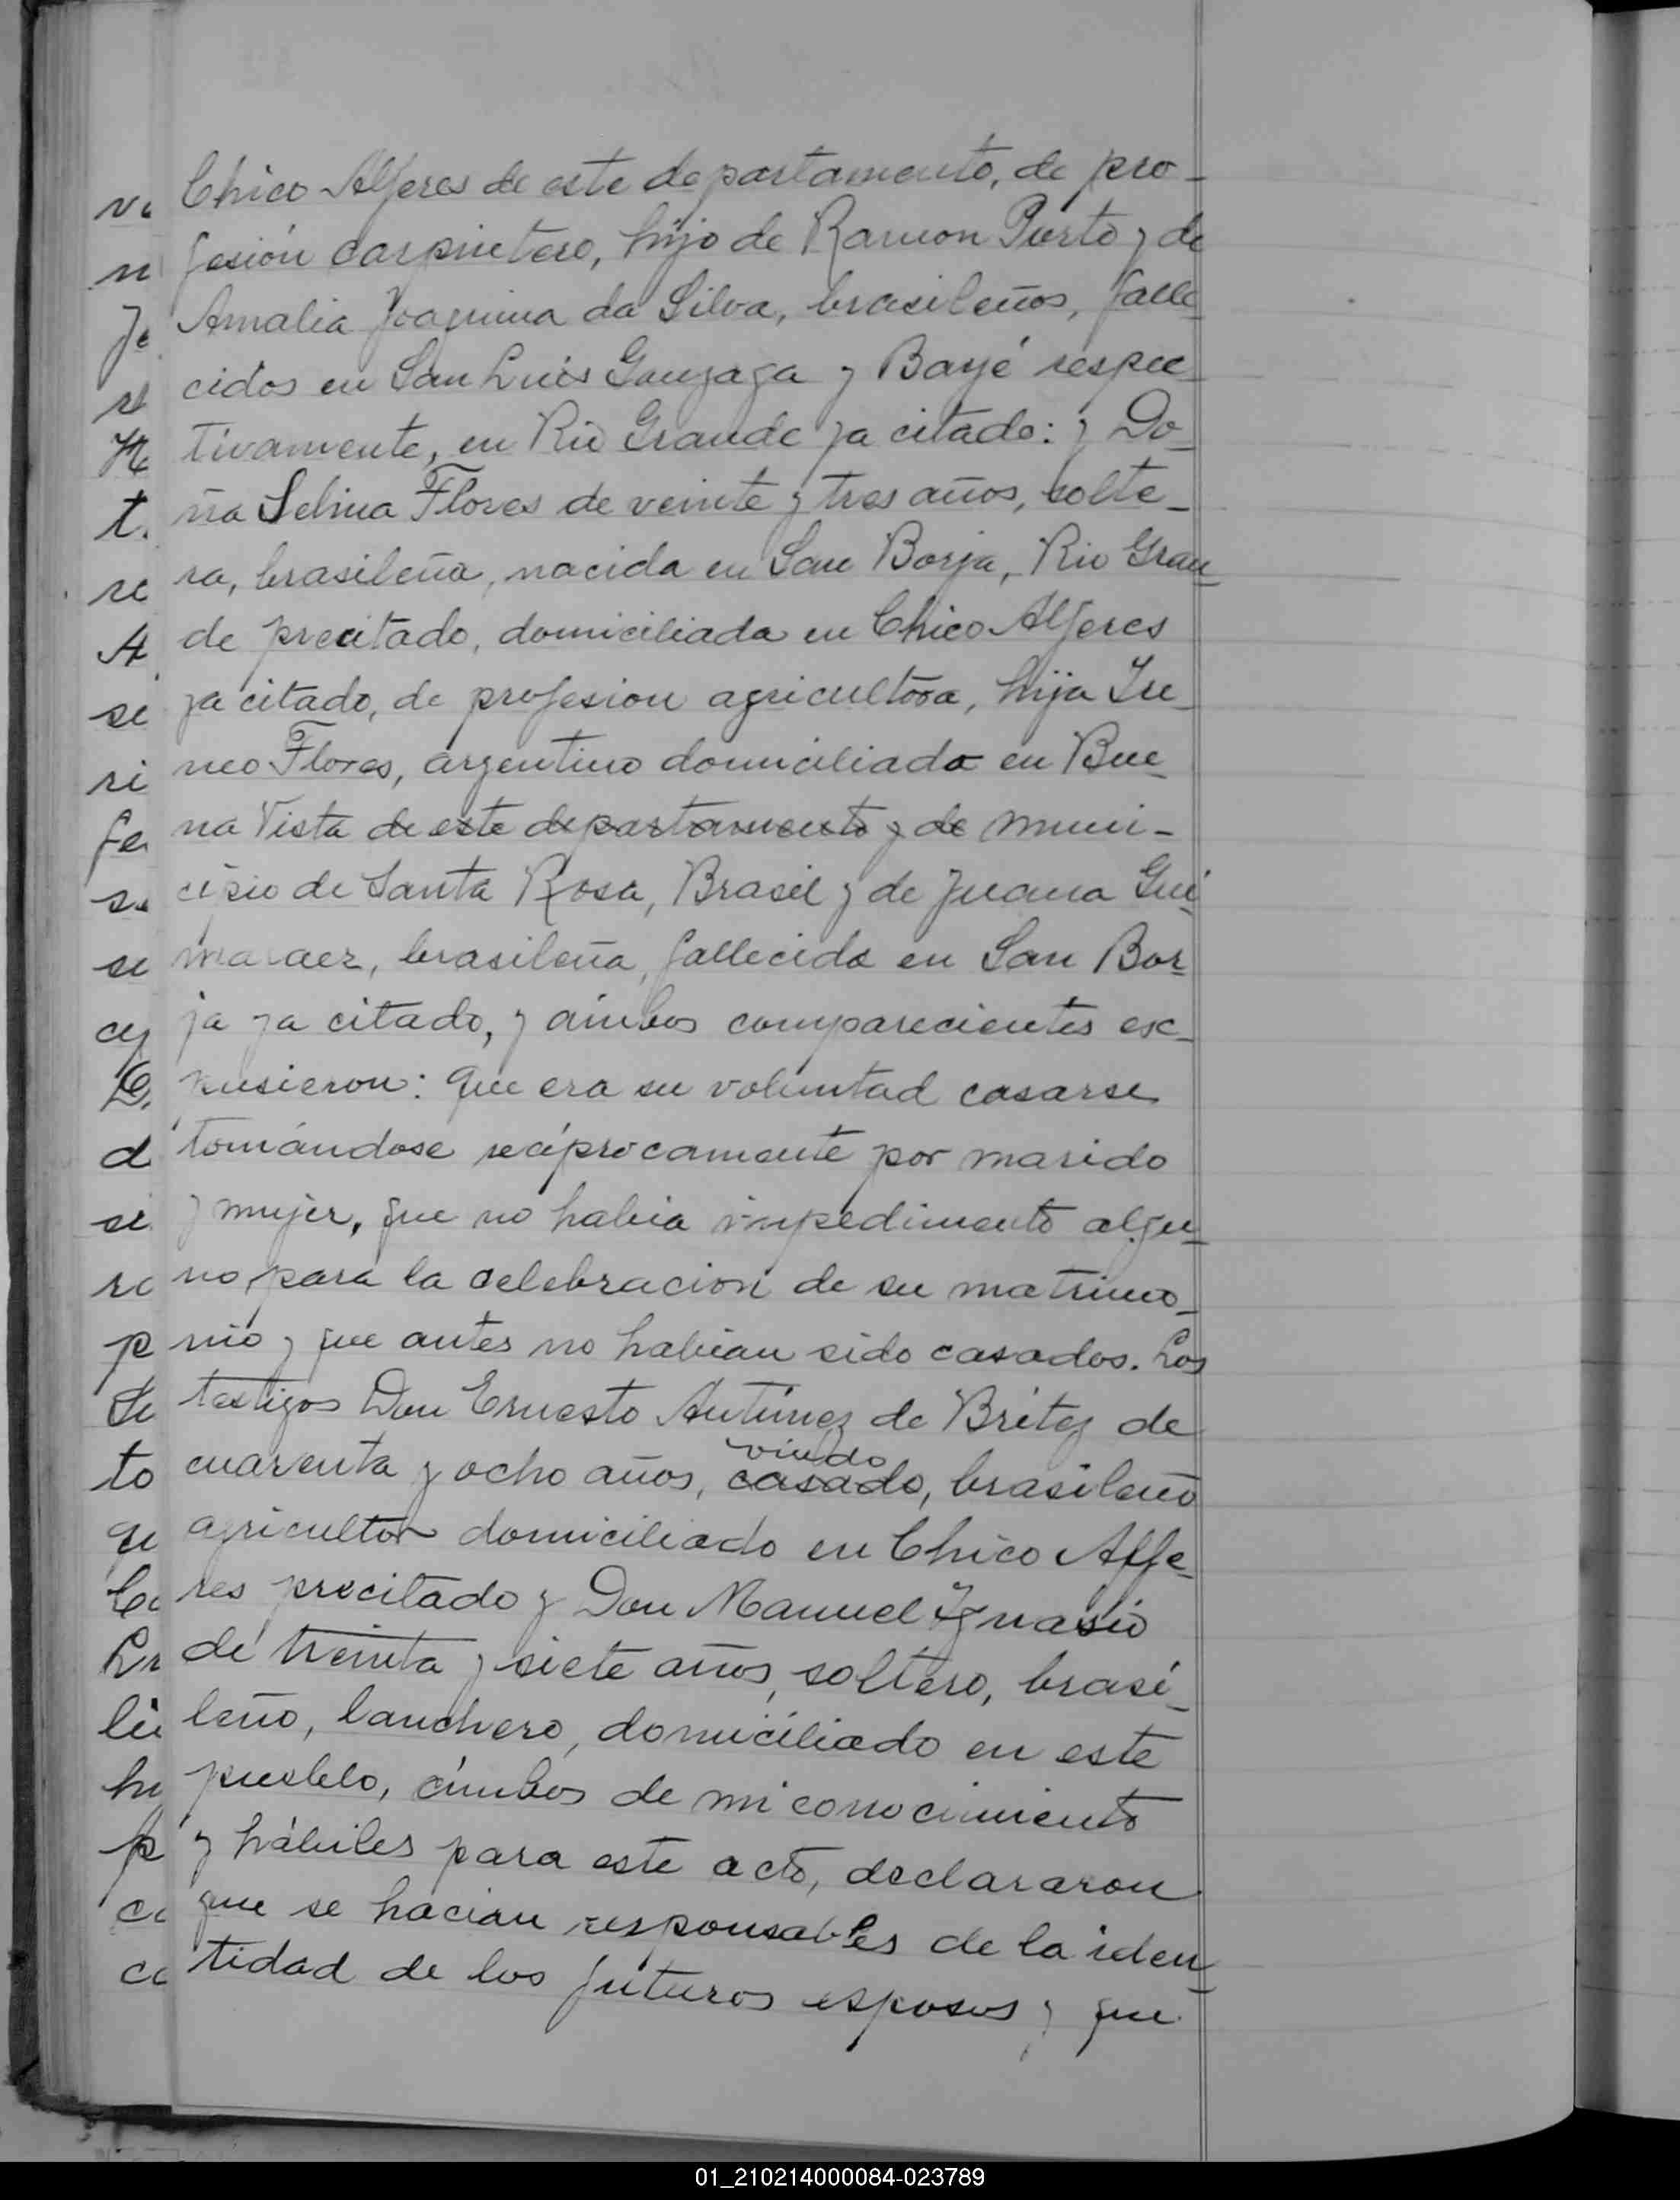 Chico Alferes de este departamento, de pro-
fesión carpintero, hijo de Ramon Puerto y de
Amalia Joaquina da Silva, brasileños, falle
cidos en San Luis Gonzaga y Bayé respec-
tivamente, en Rio Grande ya citado: y Do-
ña Selina Flores de veinte y tres años, solte-
ra, brasileña, nacida en San Borja, Rio Gran-
de precitado, domiciliada en Chico Alferes
ya citado, de profesion agricultora, hija Ire-
neo Flores, argentino domiciliado en Bue-
na Vista de este departamento y de muni-
cipio de Santa Rosa, Brasil y de Juana Gui
maraez, brasileña, fallecida en San Bor-
ja ya citado, y ámbos comparecientes esc-
pusieron: que era su voluntad casarse
tomándose recíprocamente por marido
y mujer, que no habia impedimento algu-
no para la celebracion de su matrimo-
nio y que antes no habian sido casados. Los
testigos Don Ernesto Antúnez de Brítez de
viudo
cuarenta y ocho años, casado, brasileño
agricultor domiciliado en Chico Alfe-
res precitado y Don Manuel Ygnasio
de treinta y siete años, soltero, brasi-
leño, lanchero, domiciliado en este
pueblo, ámbos de mi conocimiento
y hábiles para este acto, declararon
que se hacian responsables de la iden-
tidad de los futuros esposos y que
01_210214000084-023789